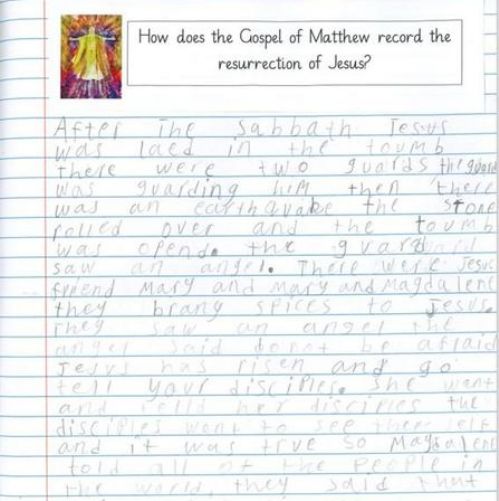 How does the Gospel of Matthew record the
resurrection of Jesus?
After The sabbath Jesus
was laed in the toumb
there were two guards the guard
was guarding him then there
was an earthquake the stone
rolled over and the toumb
was opend. the guard
saw an angel. There were Jesus
freend Mary and mary and Magdalene
they brany spices to Jesus.
They saw an angel the
angel said donot be afraid
Jesus has risen and go
tell your disciples. she went
and telld her disciples the
disciples went to see
and it was true so Magdalene
told all of the people in
the world, they said that